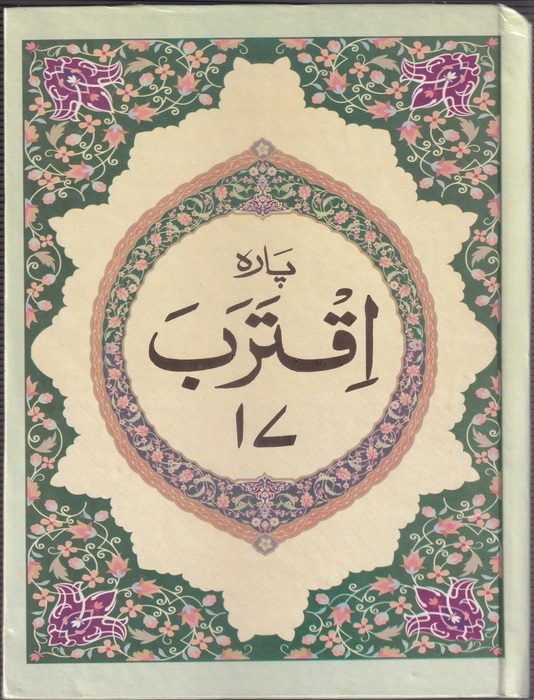 پَارہ
اِقْتَرَبَ
۱۷